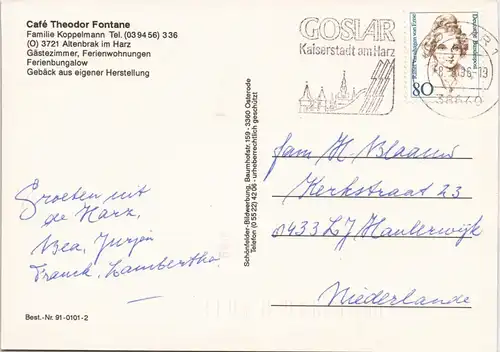 Café Theodor Fontane
Familie Koppelmann Tel. (03 94 56) 3 36
(O) 3721 Altenbrak im Harz
Gästezimmer, Ferienwohnungen
Ferienbungalow
Gebäck aus eigener Herstellung
Groeten uit
de Harz,
Bea, Jurjen
Franck, Lambertha
Best.-Nr. 91-0101-2
Schönfelder-Bildwerbung, Baumhofstr. 159 · 3360 Osterode
Telefon (0 55 22) 42 06 · urheberrechtlich geschützt
GOSLAR
Kaiserstadt am Harz
Deutsche Bundespost
80
38640
fam H. Blaauw
Kerkstraat 23
8433 LJ Haulerwijk
Niederlande